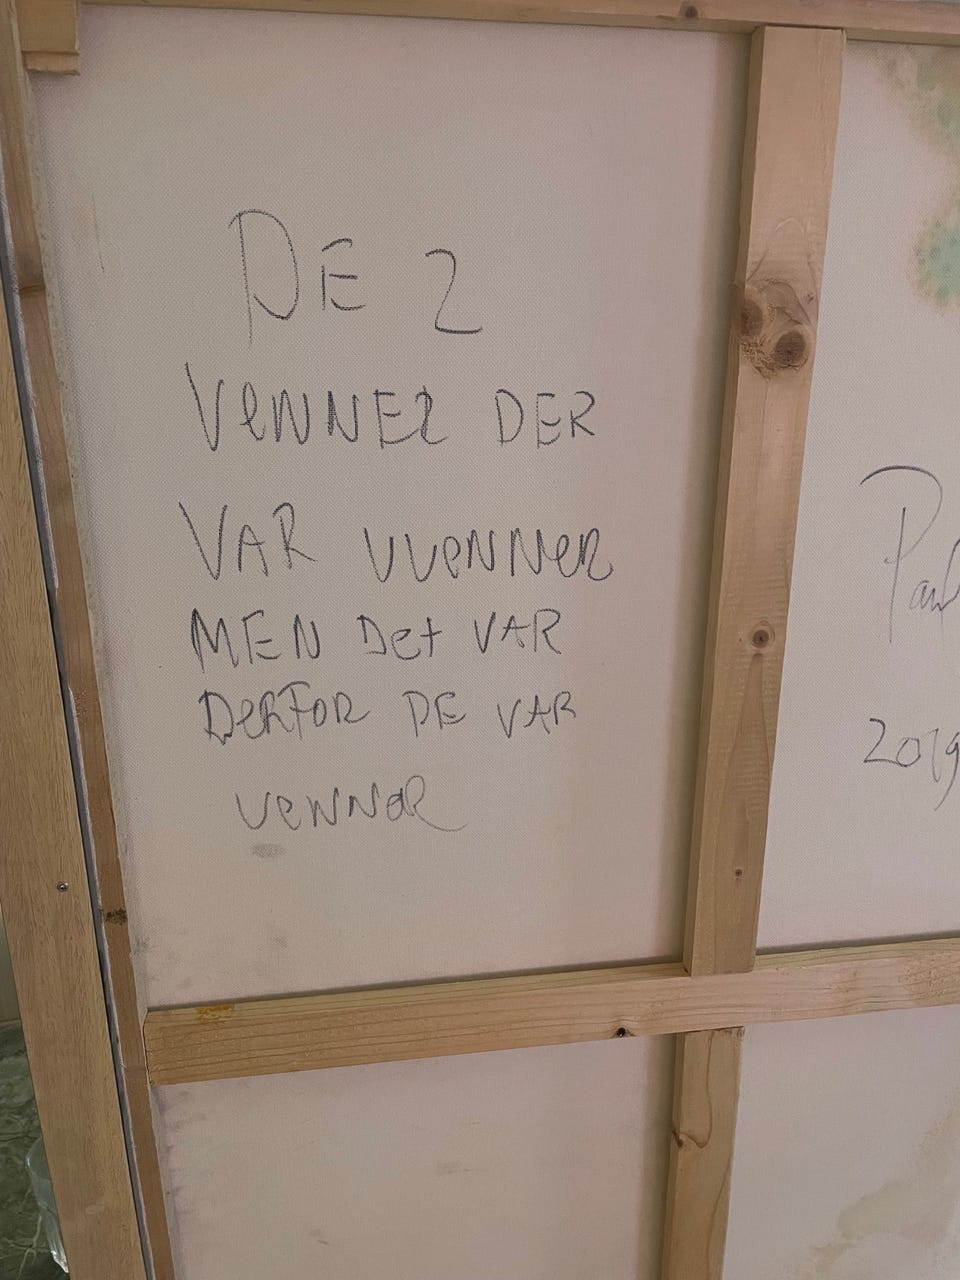 DE 2
VeNNER DER
VAR UVeNNeR
MEN Det VAR
DeRFOR DE VAR
VeNNeR
2019